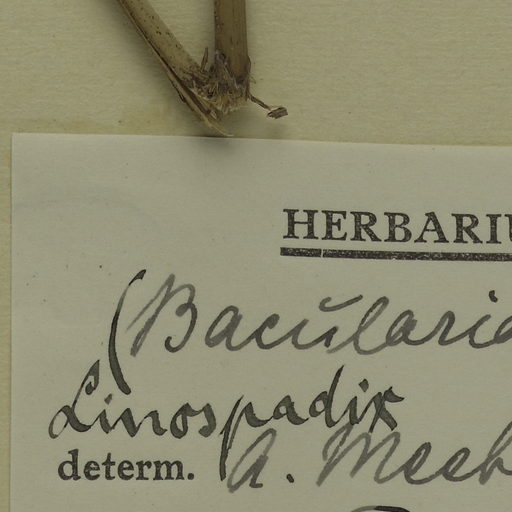 HERBARIU
(Bacularia
Linospadix
determ. A. Meeb